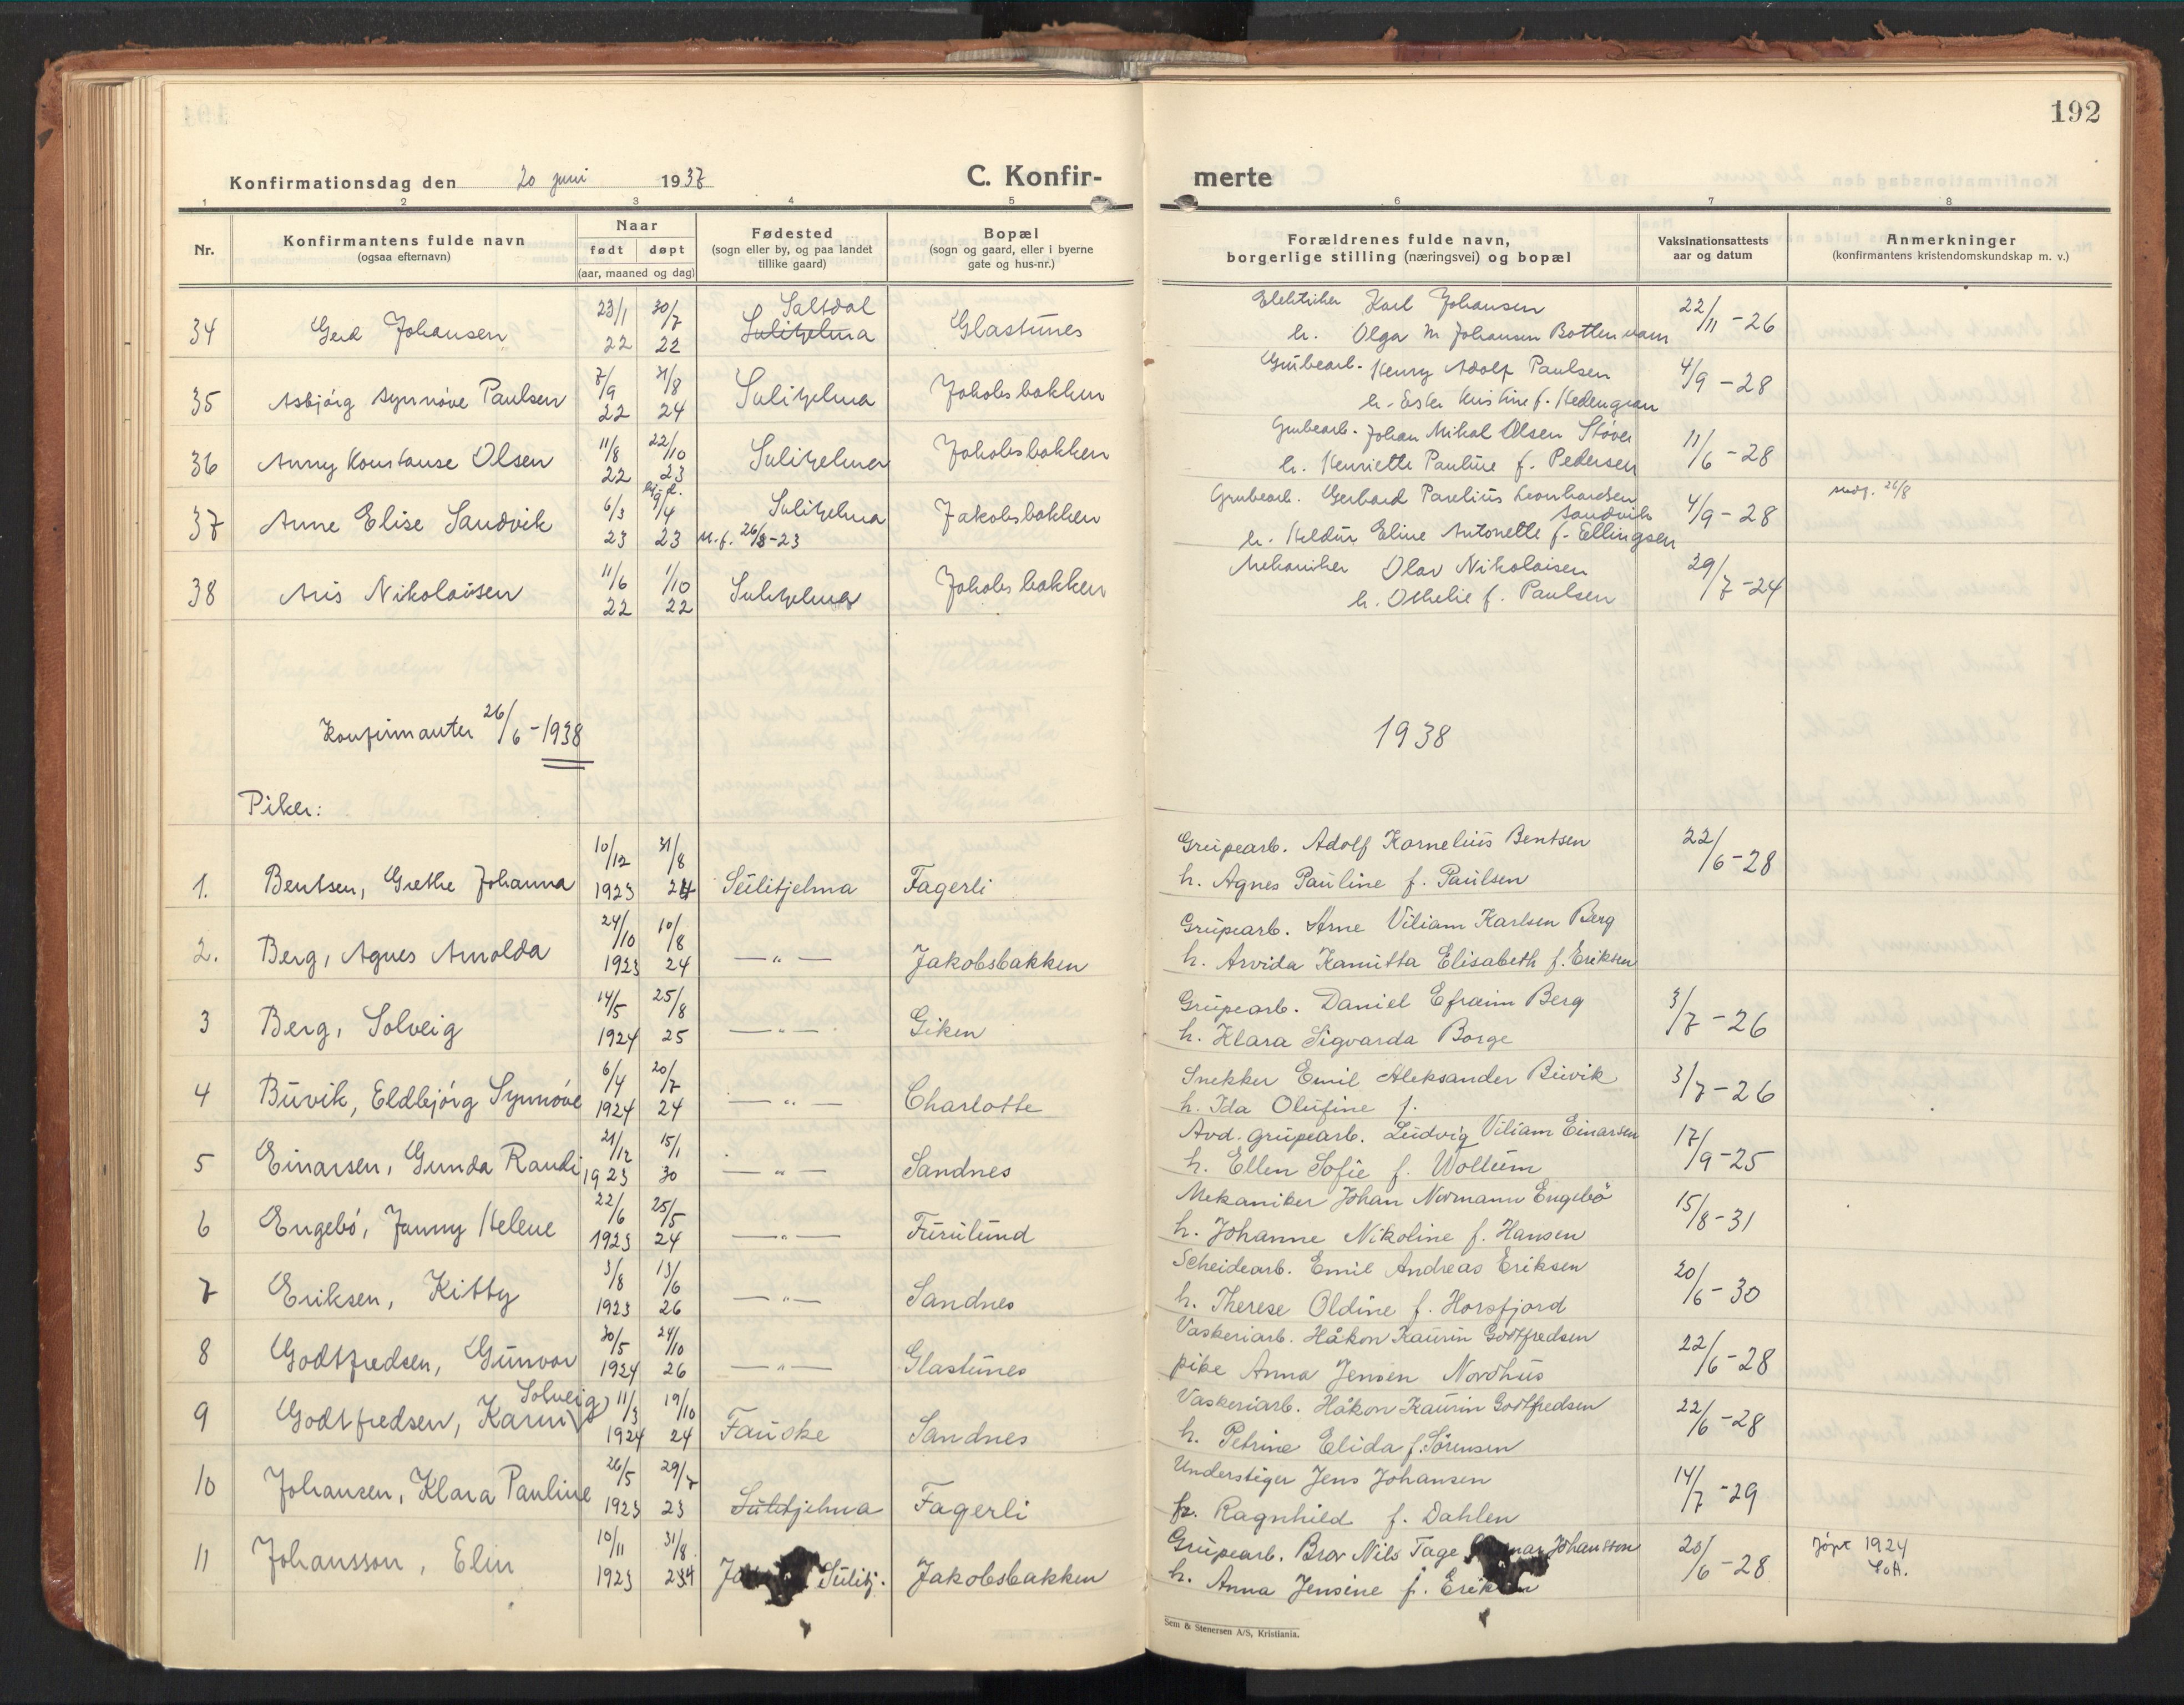 192
Konfirmationsdag den 20 juni 1937
C. Konfir-
merte
1 2 3 4 5 6 7 8
Nr.
Konfirmantens fulde navn
(ogsaa efternavn)
Naar
født døpt
(aar, maaned og dag)
Fødested
(sogn eller by, og paa landet
tillike gaard)
Bopæl
(sogn og gaard, eller i byerne
gate og hus-nr.)
Forældrenes fulde navn,
borgerlige stilling (næringsvei) og bopæl
Vaksinationsattests
aar og datum
Anmerkninger
(konfirmantens kristendomskundskap m. v.)
34 Gerd Johansen 23/1 22 30/7 22 Saltdal Sulitjelma Glastunes Elektriker Karl Johansen 22/11 - 26
h. Olga M Johansen Bottenvann
35 Asbjørg Synnøve Paulsen 7/9 22 31/8 24 Sulitjelma Jakobsbakken Grubearb. Henry Adolf Paulsen 4/9 - 28
h. Ester Kristine f.
36 Anny Konstanse Olsen 11/8 22 22/10 23 Sulitjelma Jakobsbakken Grubearb. Johan Mikal Olsen Støver 11/6 - 28
h. Henriette Pauline f. Pedersen
37 Anne Elise Sandvik 6/3 23 9/4 23 Sulitjelma Jakobsbakken Grubearb. Gerhard Parelius Leonhardsen 4/9 - 28
26/8-23 Sandvik
h. Heldur Eline Antonette f. Ellingsen
38 Aris Nikolaisen 11/6 22 1/10 22 Sulitjelma Jakobsbakken Mekaniker Olav Nikolaisen 29/7 - 24
h. Othelie f. Paulsen
Konfirmanter 26/6 - 1938
1938
Piker:
1. Bentsen, Grethe Johanna 10/12 1923 31/8 24 Sulitjelma Fagerli Grupearb. Adolf Kornelius Bentsen 22/6 - 28
h. Agnes Pauline f. Paulsen
2. Berg, Agnes Arnolda 24/10 1923 10/8 24 — " — Jakobsbakken Grupearb. Arne Viliam Karlsen Berg
h. Arvida Kamitta Elisabeth f. Eriksen
3 Berg, Solveig 14/5 1924 25/8 25 — " — Giken Grupearb. Daniel Efraim Berg 3/7 - 26
h. Klara Sigvarda Borge
4 Buvik, Eldbjørg Synnøve 6/4 1924 20/7 24 — " — Charlotte Snekker Emil Aleksander Buvik 3/7 - 26
h. Ida Olufine f.
5 Einarsen, Gunda Randi 21/12 1923 15/1 30 — " — Sandnes Avd. grupearb. Ludvig Viliam Einarsen 17/9 - 25
h. Ellen Sofie f. Wollum
6 Engebø, Janny Helene 22/6 1923 25/5 24 — " — Furulund Mekaniker Johan Normann Engebø 15/8 - 31
h. Johanne Nikoline f. Hansen
7 Eriksen, Kitty 3/8 1923 13/6 26 — " — Sandnes Scheidearb. Emil Andreas Eriksen 20/6 - 30
h. Therese Oldine f. Horsfjord
8 Godtfredsen, Gunvor 30/5 1924 24/10 26 — " — Glastunes Vaskeriarb. Håkon Kaurin Godtfredsen 22/6 - 28
pike Anna Jensen Nordhus
9 Godtfredsen, Karin Solveig 11/3 1924 19/10 24 Fauske Sandnes Vaskeriarb. Håkon Kaurin Godtfredsen 22/6 - 28
h. Petrine Elida f. Sörensen
10 Johansen, Klara Pauline 26/5 1923 29/7 23 Sulitjelma Fagerli Understiger Jens Johansen 14/7 - 29
fr. Ragnhild f. Dahlen
11 Johansson, Elin 10/11 1923 31/8 24 Sulitj. Jakobsbakken Grupearb. Bror Nils Tage Johansson 20/6 - 28 1924
h. Anna Jensine f. Eriksen
Sem & Stenersen A/S, Kristiania.